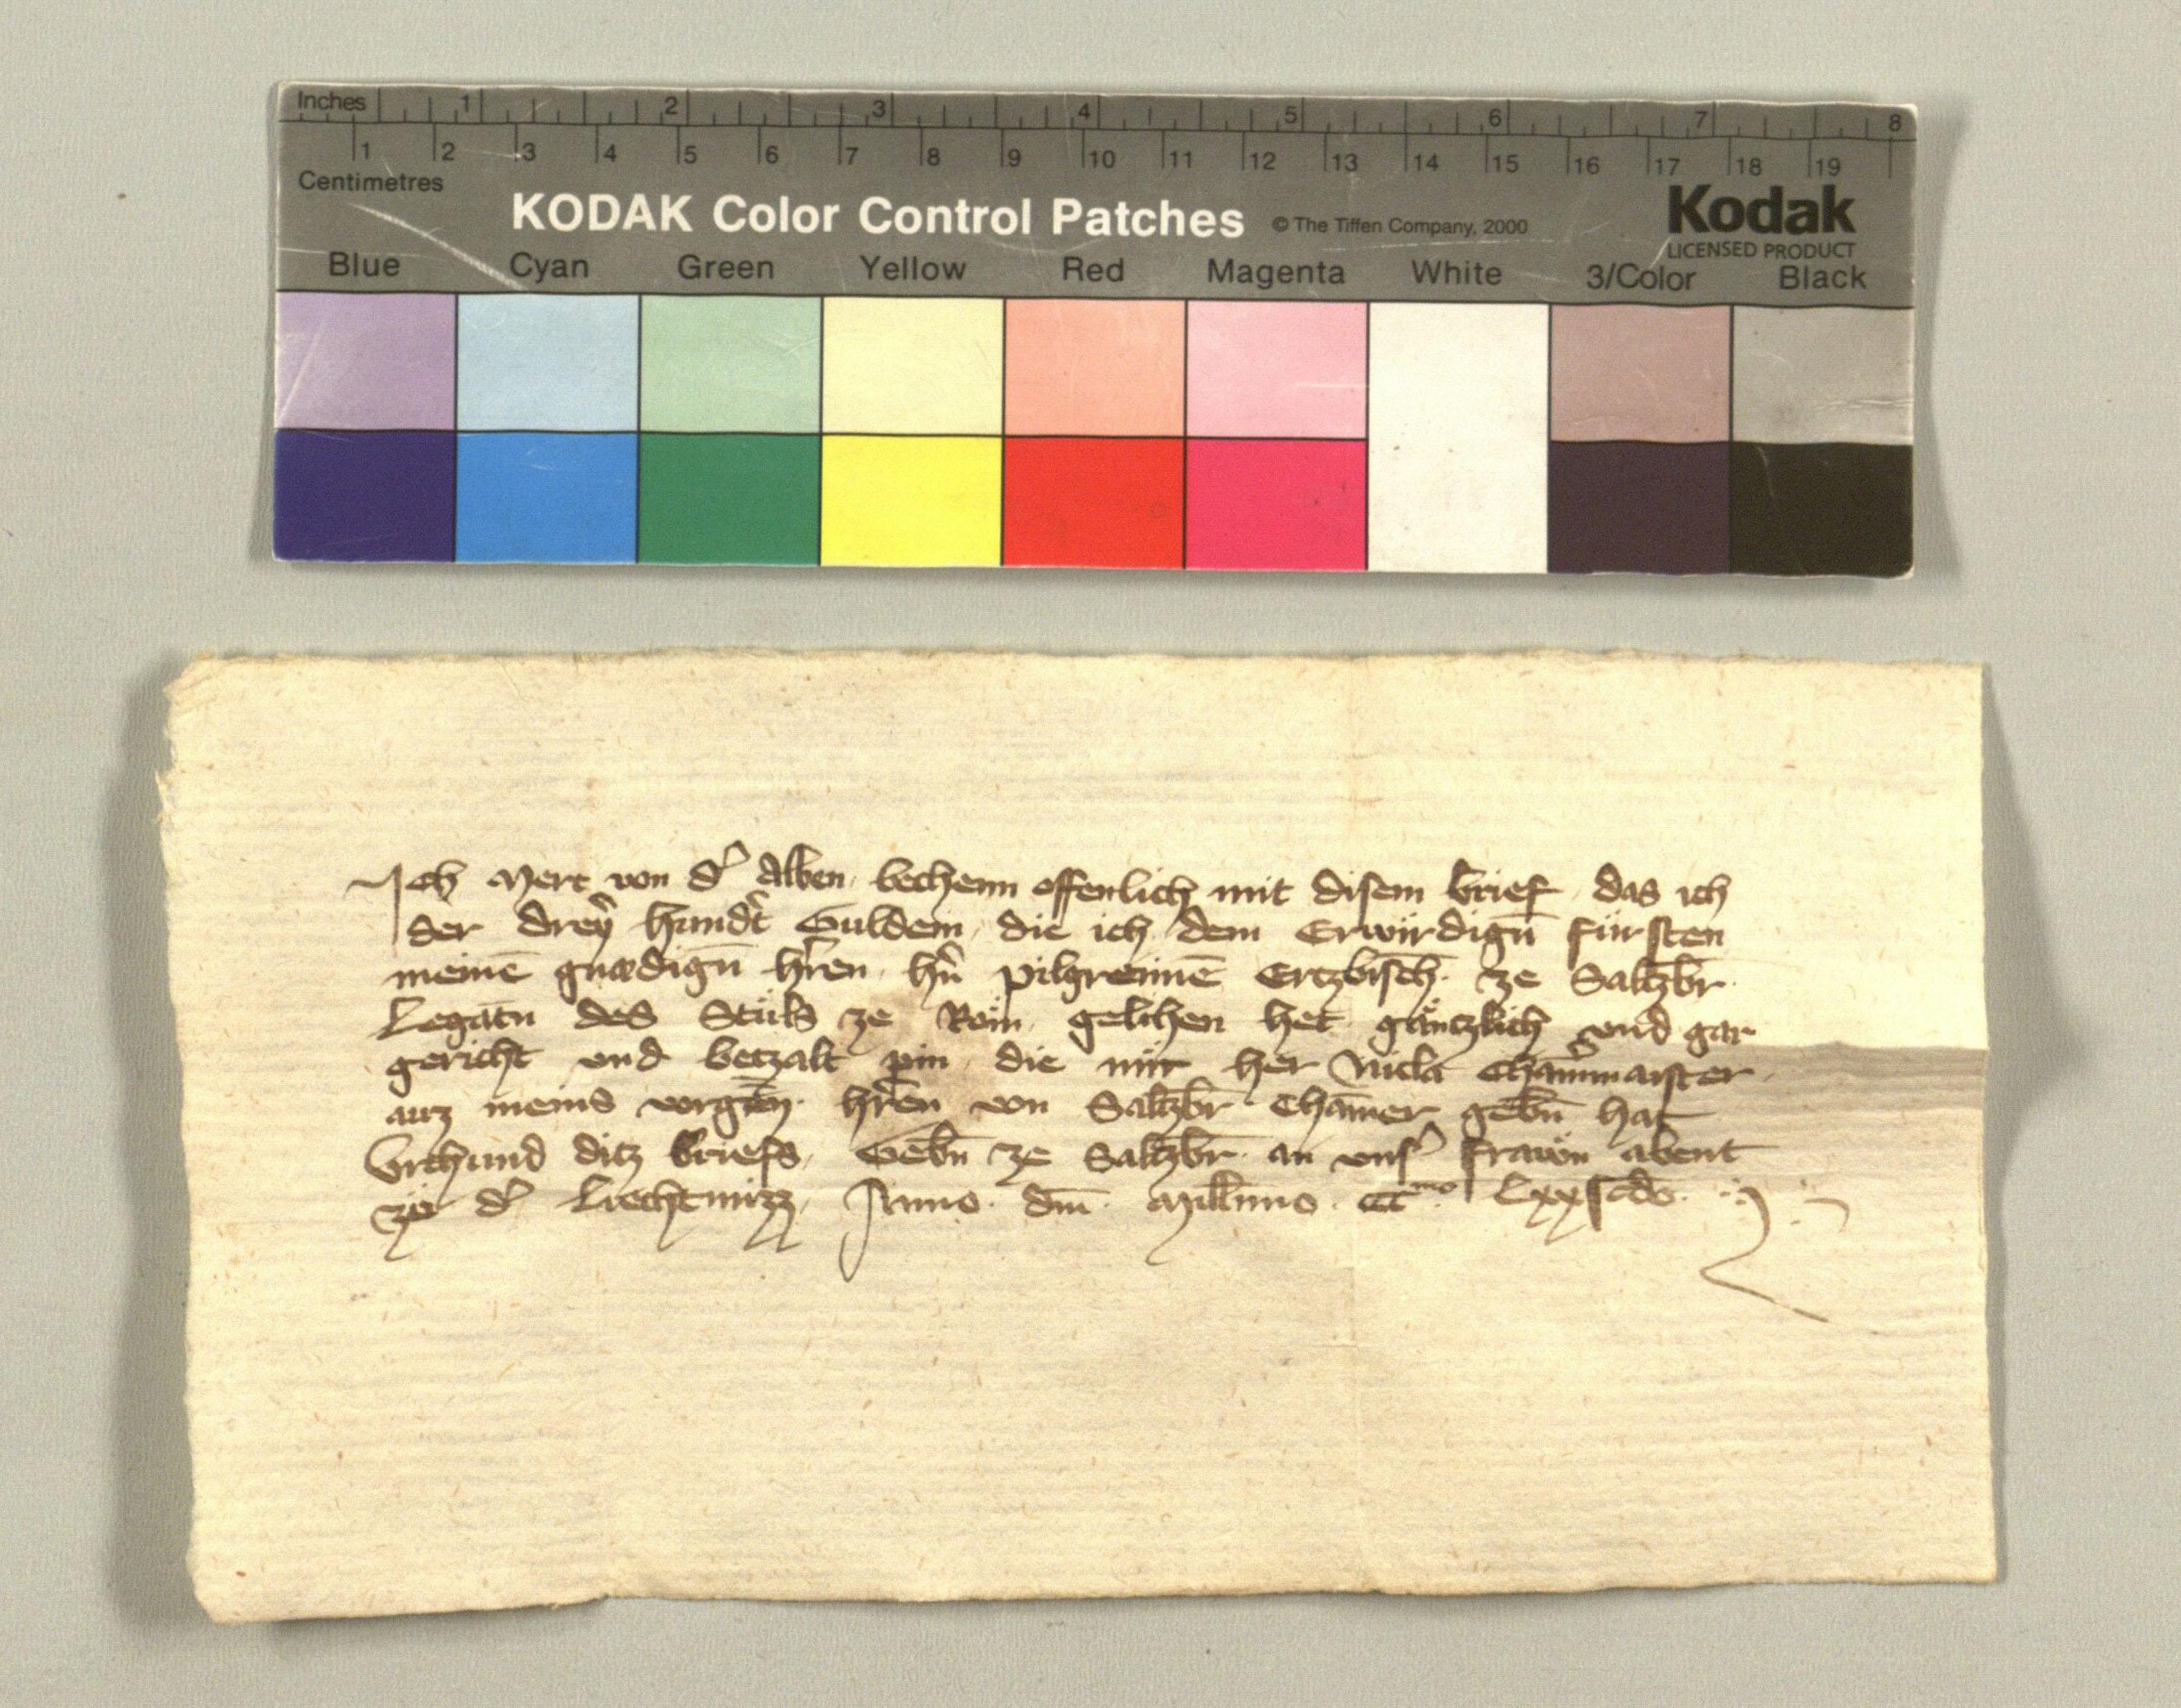 Inches 1 2 3 4 5 6 7 8
1 2 3 4 5 6 7 8 9 10 11 12 13 14 15 16 17 18 19
Centimetres
KODAK Color Control Patches © The Tiffen Company, 2000 Kodak
LICENSED PRODUCT
Blue Cyan Green Yellow Red Magenta White 3/Color Black
Ich Mert von d' Alben bechenn offenlich mit disem brief das ich
der dreÿ hundt Guldein die ich dem Erwirdign̄ fürsten
meinē gnædign̄ hr̄en hn̄ pilgreimē Ertzbisch. ze Saltzbr̄
Legatn̄ des Stůls ze Röm gelihen het gäntzlich vnd gar
gericht vnd betzalt pin die mir her Nicla Cham̄maister
auz meins vorgn̄ hr̄en von Saltzbr̄ Cham̄er gebn̄ hat
Vrchund ditz briefs Gebn̄ ze Saltzbr̄ an vns' frawn abent
ze d' Liechtmizz Anno dm̄ Mill̄mo CCCmo Lxxscdo.